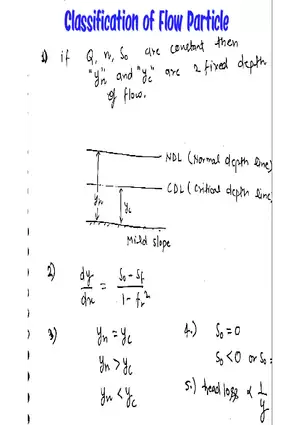 Classification of Flow Particle
1) if Q, n, S₀ are constant then
"yₙ" and "y_c" are 2 fixed depth
of flow.
NDL (Normal depth line)
CDL (Critical depth line)
yₙ
y_c
Mild slope
2) dy/dx = (S₀ - S_f)/(1 - f_r²)
3) yₙ = y_c
yₙ > y_c
yₙ < y_c
4.) S₀ = 0
S₀ < 0 or S₀ =
5.) head loss ∝ 1/y